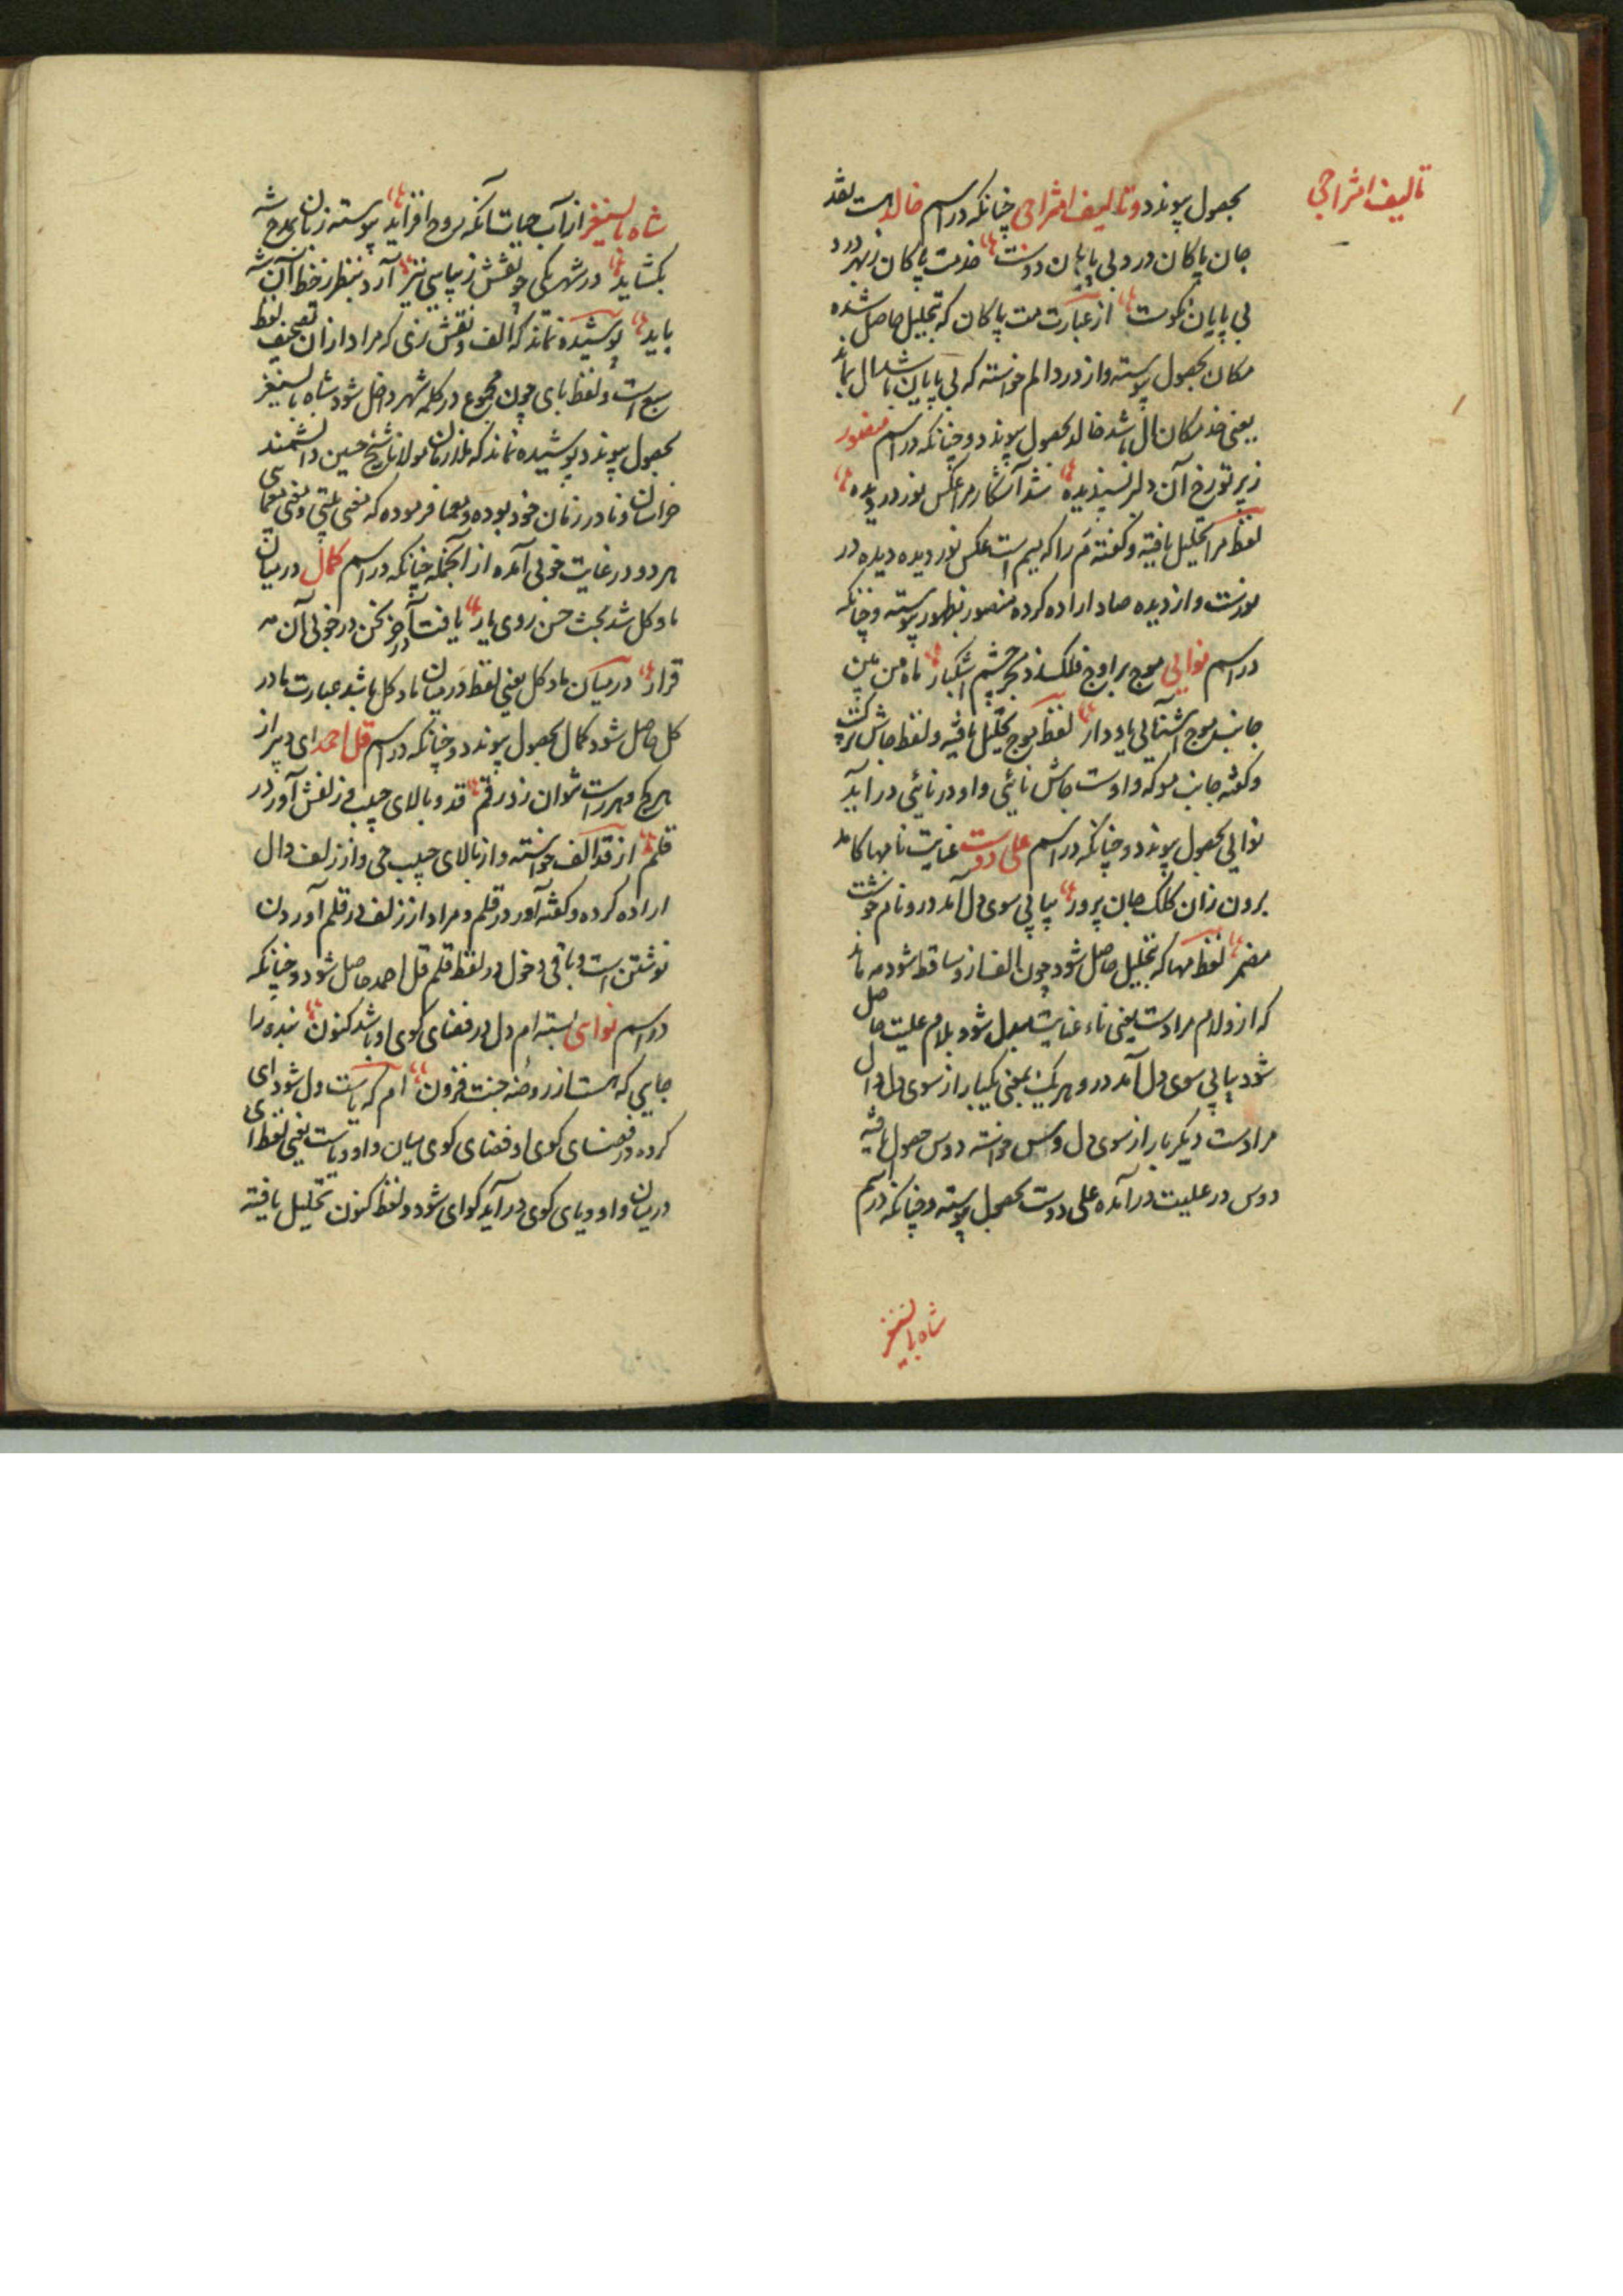 تالیف امتزاجی
بحصول پیوندد و تالیف امتزاجی چنانکه در اسم خالد هست نقد
جان پاکان درد بی پایان دوست خدمت پاکان زبهر درد
بی پایان نکوست از عبارت مت پاکان که بتحلیل حاصل شده
مکان بحصول پیوسته و از درد الم خواسته که بی پایان باشد ال بماند
یعنی خد مکان ال باشد خالد بحصول پیوندد و چنانکه در اسم منصور
زیر تو رخ آن دلبر پسندیده شد آشکار مرا عکس نور در دیده
لفظ مرا تحلیل یافته و گفته مَ را که میم است عکس نور دیده دیده در
نورست و از دیده صاد اراده کرده منصور بظهور پیوسته و چنانکه
در اسم نوایی موج بر اوج فلک زد بحر چشم اشکبار ماه من بین
جانب موج آشنائی یاد دار لفظ موج تحلیل یافته و لفظ جاش
و گفته جانب مو که واوست جاش نائی واو در نائی درآید
نوایی بحصول پیوندد و چنانکه در اسم علی دوست عنایت نامها کامد
برون زان کلک جان پرور پیاپی سوی دل آمد درو نام خوشت
مضمر لفظ مها که بتحلیل حاصل شود چون الف ازو ساقط شود مه ماند
که ازو لام مرادست یعنی ناء عنایت مبدل شود بلام علیت حاصل
شود پیاپی سوی دل آمد درو هر یک بمعنی یکبار از سوی دل دال
مرادست دیگر بار از سوی دل وس خواسته دوس حصول یافته
دوس در علیت درآمده علی دوست بحصول پیوسته و چنانکه در اسم
شاه بایسنغر
شاه بایسنغر از آب حیات آنکه روح افزاید پیوسته زبان بمدح شه
بگشاید در شهر یکی چو نقش زیبایی نیز آرد بنظر ز خط آن شه
باید پوشیده نماند که الف و نقش نزی که مراد از ان تصحیف لفظ
سبع است و لفظ بای چون مجموع در کلمه شهر داخل شود شاه بایسنغر
بحصول پیوندد پوشیده نماند که ملازمان مولانا شیخ حسین دانشمند
خراسان و نادر زمان خود بوده و معما فرموده که معنی بیتی و معنی معمایی
هر دو در غایت خوبی آمده از آنجمله چنانکه در اسم کمال در میان
باد و گل شد بحث حسن روی یار یافت آخر سخن در خوبی آن مه
قرار در میان باد و گل یعنی لفظ در میان باد و گل باشد عبارت باد در
گل حاصل شود کمال بحصول پیوندد و چنانکه در اسم قل احمد ای دبیر از
هر کج و هر راست نتوان زد رقم قد و بالای حبیب و زلفش آور در
قلم از قد الف خواسته و از بالای حبیب حی و از زلف دال
اراده کرده و گفته آور در قلم و مراد از زلف در قلم آوردن
نوشتن است و باقی دخول در لفظ قلم قل احمد حاصل شود و چنانکه
در اسم نوایی بسته ام دل در فضای کوی او باشد کنون بنده را
جایی که هست از روضه جنت فزون ام که بست دل شود ای
کرده در فضای کوی او فضای کوی میان واو و یاست یعنی لفظ ای
در میان واو و یای کوی درآید کوای شود و لفظ کنون تحلیل یافته